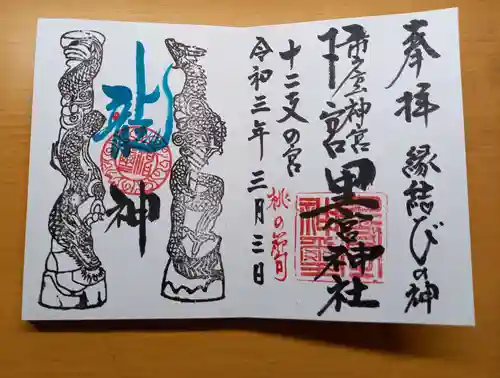 奉拝 縁結びの神
神宮
里宮神社
十二支の宮
令和三年三月三日
桃の節句
龍神